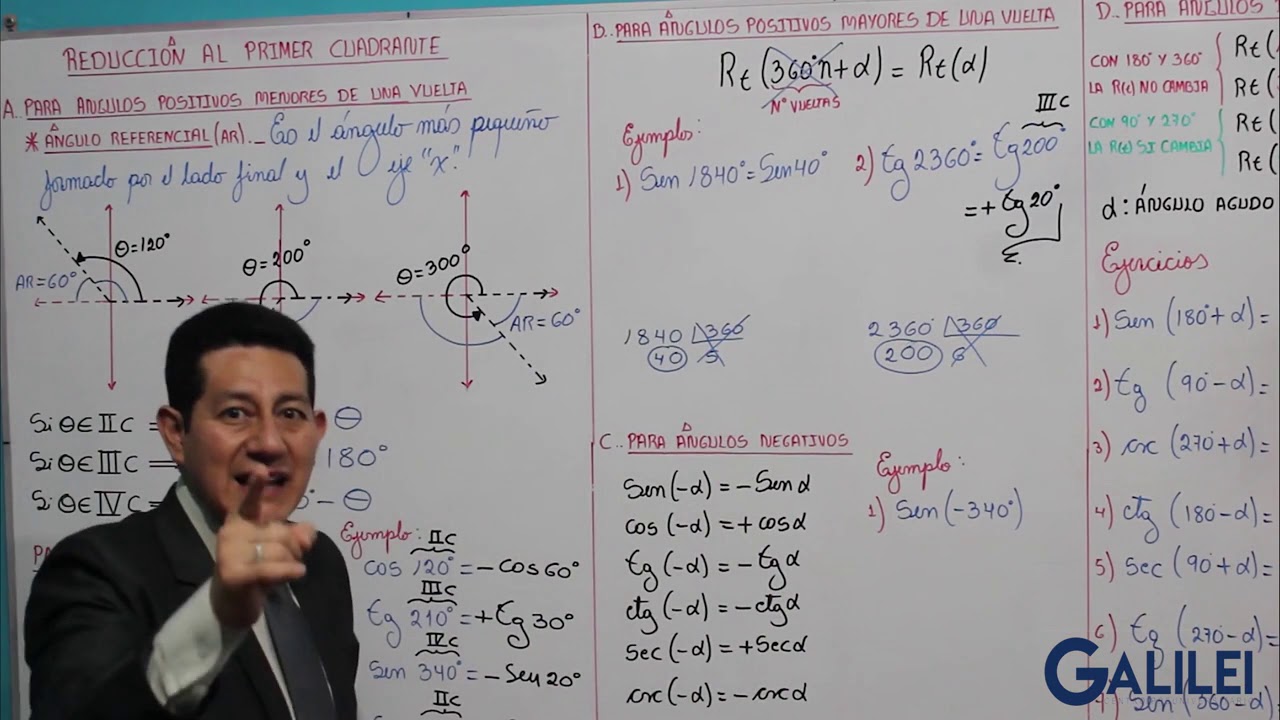 REDUCCIÓN AL PRIMER CUADRANTE
A.. PARA ANGULOS POSITIVOS MENORES DE UNA VUELTA
* ÁNGULO REFERENCIAL (AR)._ Es el ángulo más pequeño
formado por el lado final y el eje "x".
θ=120°
AR=60°
θ=200°
θ=300°
AR=60°
Si θ∈IIC =
θ
Si θ∈IIIC =
180°
Si θ∈IVC =
- θ
Ejemplo:
IIC
cos 120° = -cos 60°
IIIC
Tg 210° = +Tg 30°
IVC
Sen 340° = -Sen 20°
IIC
B.. PARA ÁNGULOS POSITIVOS MAYORES DE UNA VUELTA
Rt (360°n+α) = Rt(α)
N° VUELTAS
Ejemplos:
1) Sen 1840° = Sen 40°
IIIC
2) Tg 2360° = Tg 200°
= + Tg 20°
1840 360
40 5
2360 360
200 6
C.. PARA ÁNGULOS NEGATIVOS
Sen (-α) = -Sen α
cos (-α) = +cos α
Tg (-α) = -Tg α
ctg (-α) = -ctg α
Sec (-α) = +Sec α
csc (-α) = -csc α
Ejemplo:
1) Sen (-340°)
D.. PARA ANGULOS
CON 180° Y 360°
LA R(t) NO CAMBIA
CON 90° Y 270°
LA R(t) SI CAMBIA
Rt (
Rt (
Rt (
Rt (
α: ÁNGULO AGUDO
Ejercicios
1) Sen (180°+α)=
2) Tg (90°-α)=
3) csc (270°+α)=
4) ctg (180°-α)=
5) Sec (90°+α)=
6) Tg (270°-α)=
7) Sen (360°-α)
GALILEI